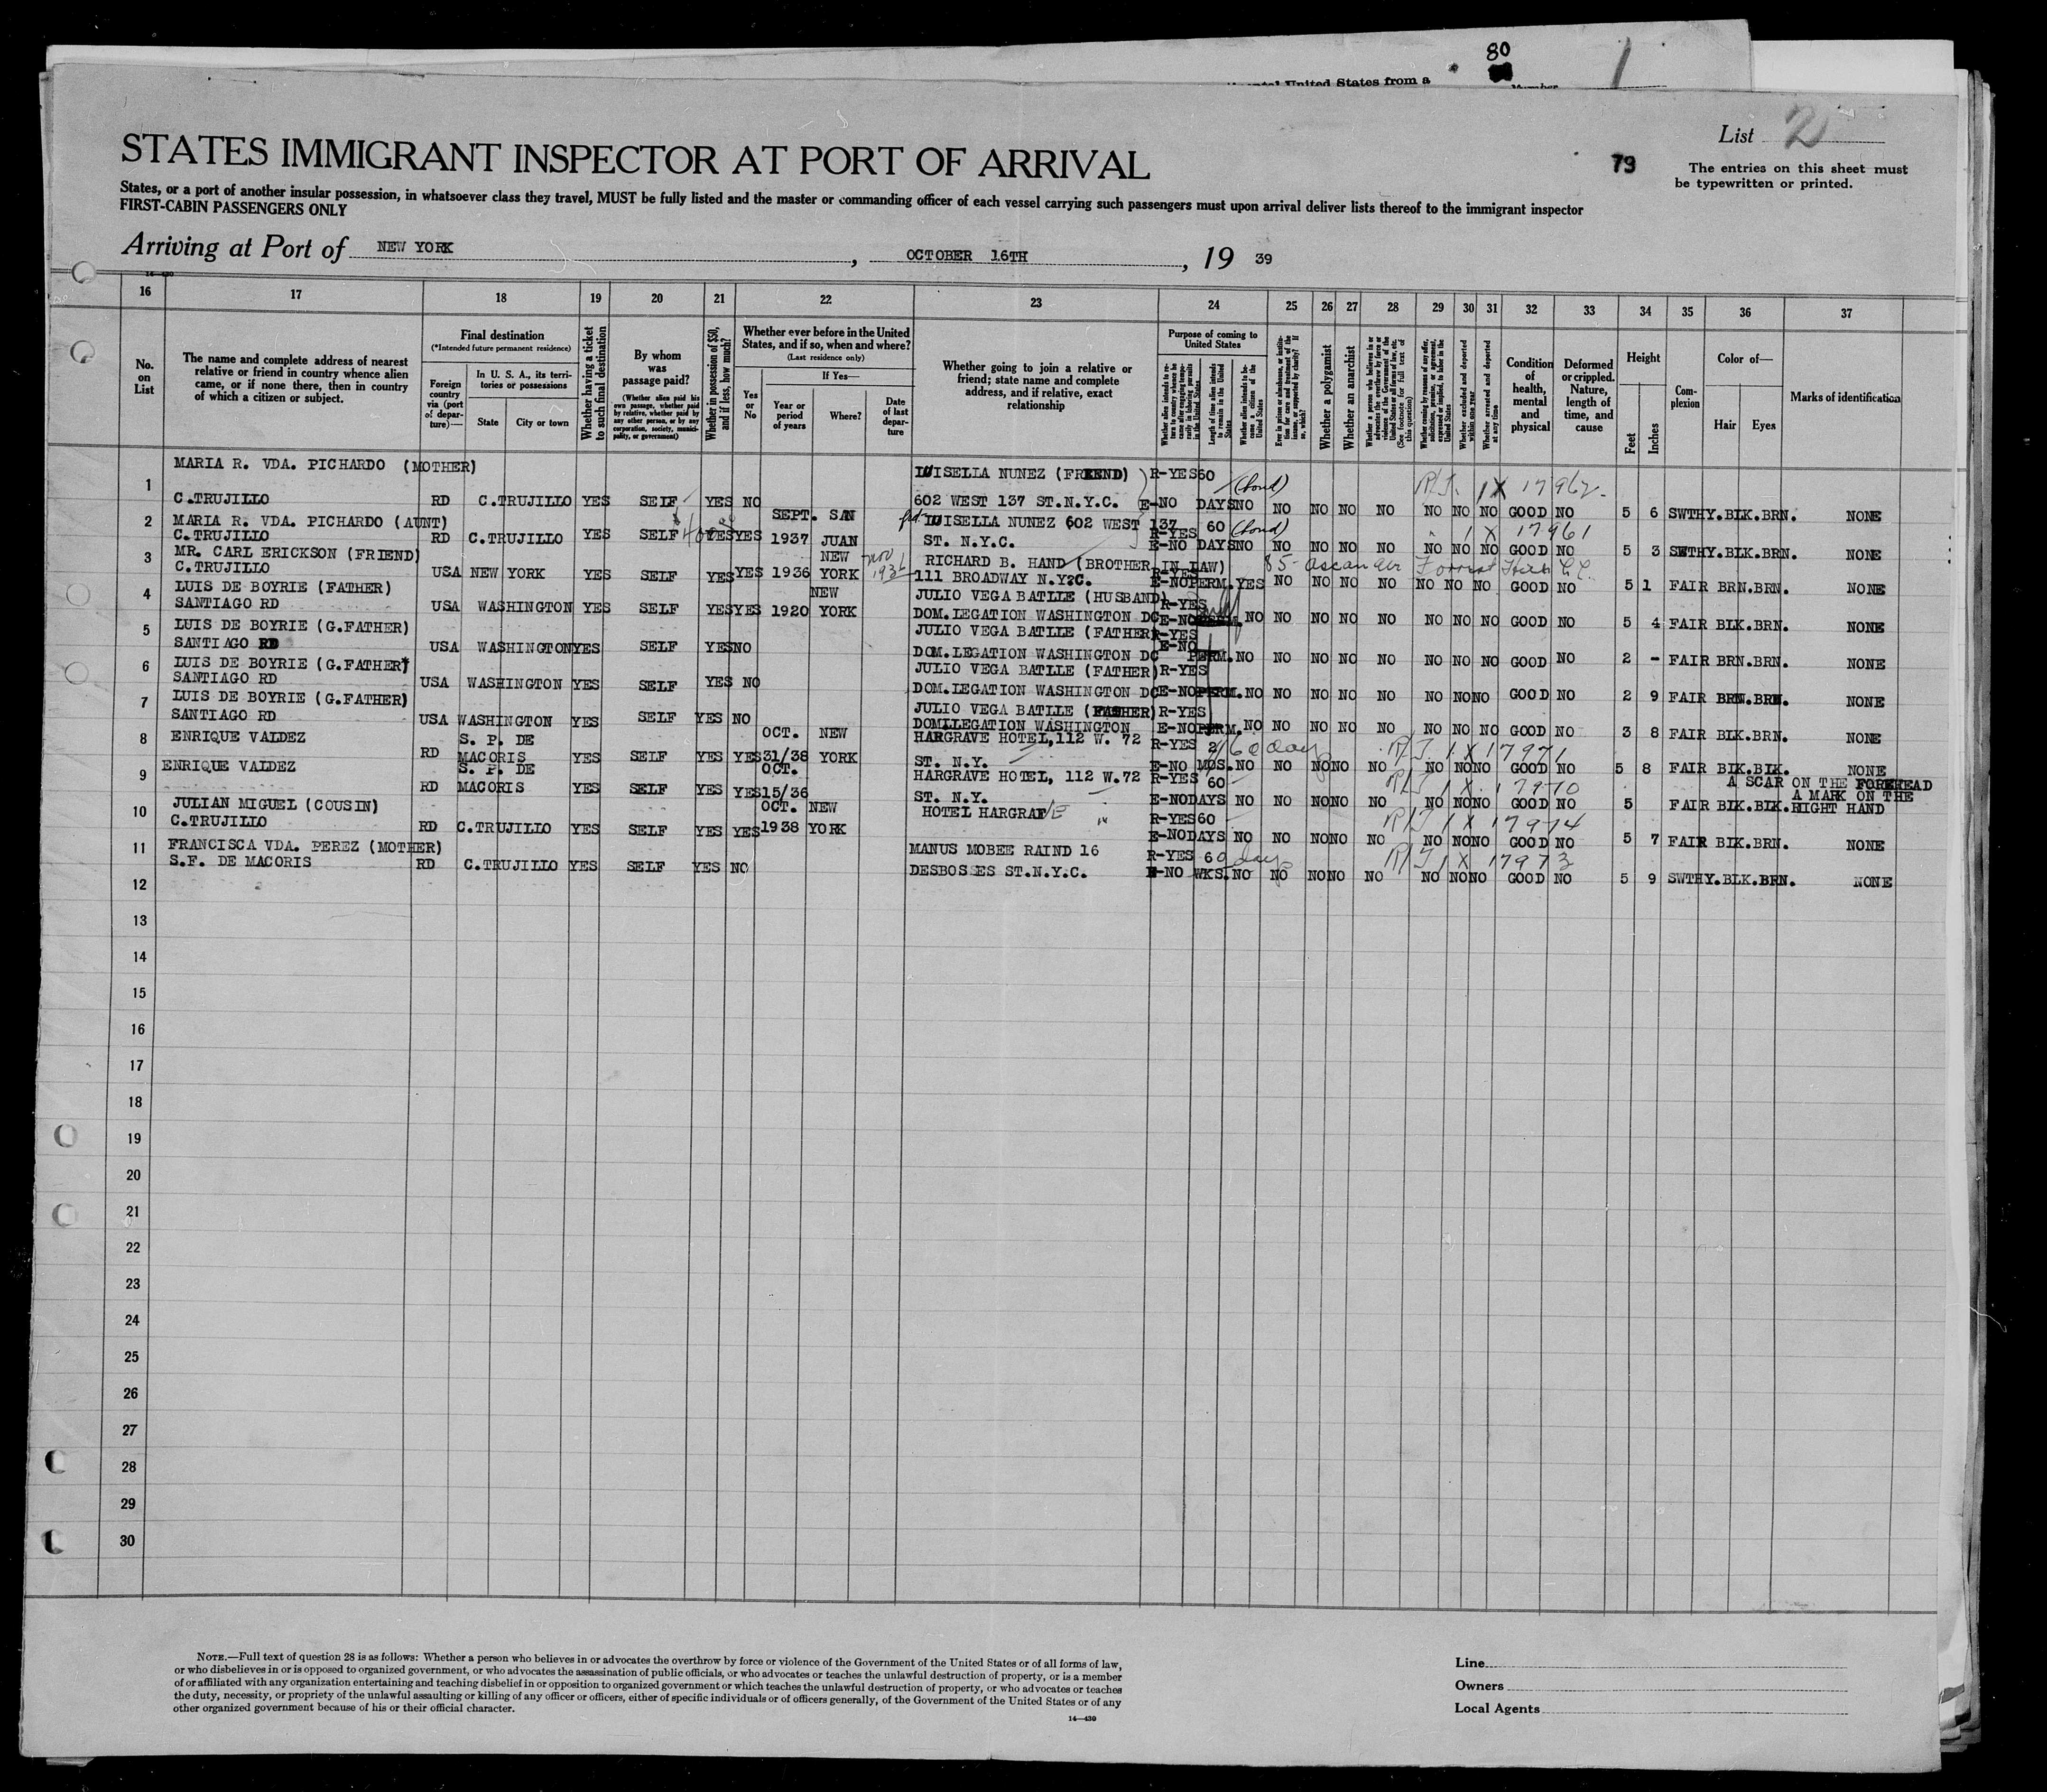 80
1
ental United States from a
Number
List 2
79
The entries on this sheet must
be typewritten or printed.
STATES IMMIGRANT INSPECTOR AT PORT OF ARRIVAL
States, or a port of another insular possession, in whatsoever class they travel, MUST be fully listed and the master or commanding officer of each vessel carrying such passengers must upon arrival deliver lists thereof to the immigrant inspector
FIRST-CABIN PASSENGERS ONLY
Arriving at Port of NEW YORK, OCTOBER 16TH, 19 39
14—430
16 17 18 19 20 21 22 23 24 25 26 27 28 29 30 31 32 33 34 35 36 37
No. on List
The name and complete address of nearest relative or friend in country whence alien came, or if none there, then in country of which a citizen or subject.
Final destination
(*Intended future permanent residence)
Foreign country via (port of departure)—
In U. S. A., its territories or possessions
State
City or town
Whether having a ticket to such final destination
By whom was passage paid?
(Whether alien paid his own passage, whether paid by relative, whether paid by any other person, or by any corporation, society, municipality, or government)
Whether in possession of $50, and if less, how much?
Whether ever before in the United States, and if so, when and where?
(Last residence only)
Yes or No
If Yes—
Year or period of years
Where?
Date of last departure
Whether going to join a relative or friend; state name and complete address, and if relative, exact relationship
Purpose of coming to United States
Length of time alien intends to remain in the United States
Whether alien intends to become a citizen of the United States
Whether a polygamist
Whether an anarchist
Whether excluded and deported within one year
Whether arrested and deported at any time
Condition of health, mental and physical
Deformed or crippled. Nature, length of time, and cause
Height
Feet
Inches
Complexion
Color of—
Hair
Eyes
Marks of identification
MARIA R. VDA. PICHARDO (MOTHER) LUISELLA NUNEZ (FRIEND) R-YES 60 (bond) R/T. 1 X 17962
1 C.TRUJILLO RD C.TRUJILLO YES SELF YES NO 602 WEST 137 ST.N.Y.C. E-NO DAYS NO NO NO NO NO NO NO NO GOOD NO 5 6 SWTHY. BLK. BRN. NONE
2 MARIA R. VDA. PICHARDO (AUNT) SEPT. SAN LUISELLA NUNEZ 602 WEST 137 R-YES 60 (bond) 1 X 17961
C.TRUJILLO RD C.TRUJILLO YES SELF YES YES 1937 JUAN ST. N.Y.C. E-NO DAYS NO NO NO NO NO NO NO NO GOOD NO 5 3 SWTHY. BLK. BRN. NONE
3 MR. CARL ERICKSON (FRIEND) NEW Nov 1936 RICHARD B. HAND (BROTHER IN LAW) R-YES 85- Ascan Av Forrest Hills L.I.
C.TRUJILLO USA NEW YORK YES SELF YES YES 1936 YORK 111 BROADWAY N.Y?C. E-NO PERM. YES NO NO NO NO NO NO NO GOOD NO 5 1 FAIR BRN. BRN. NONE
4 LUIS DE BOYRIE (FATHER) NEW JULIO VEGA BATLLE (HUSBAND) R-YES
SANTIAGO RD USA WASHINGTON YES SELF YES YES 1920 YORK DOM.LEGATION WASHINGTON DC E-NO PERM. NO NO NO NO NO NO NO NO GOOD NO 5 4 FAIR BLK. BRN. NONE
5 LUIS DE BOYRIE (G.FATHER) JULIO VEGA BATLLE (FATHER) R-YES
SANTIAGO RD USA WASHINGTON YES SELF YES NO DOM.LEGATION WASHINGTON DC E-NO PERM. NO NO NO NO NO NO NO NO GOOD NO 2 - FAIR BRN. BRN. NONE
6 LUIS DE BOYRIE (G.FATHER) JULIO VEGA BATLLE (FATHER) R-YES
SANTIAGO RD USA WASHINGTON YES SELF YES NO DOM.LEGATION WASHINGTON DC E-NO PERM. NO NO NO NO NO NO NO NO GOOD NO 2 9 FAIR BRN. BRN. NONE
7 LUIS DE BOYRIE (G.FATHER) JULIO VEGA BATLLE (FATHER) R-YES
SANTIAGO RD USA WASHINGTON YES SELF YES NO DOM.LEGATION WASHINGTON E-NO PERM. NO NO NO NO NO NO NO NO GOOD NO 3 8 FAIR BLK. BRN. NONE
8 ENRIQUE VALDEZ S. P. DE OCT. NEW HARGRAVE HOTEL, 112 W. 72 R-YES 2 60 days R/T 1 X 17971
RD MACORIS YES SELF YES YES 31/38 YORK ST. N.Y. E-NO MOS. NO NO NO NO NO NO NO NO GOOD NO 5 8 FAIR BLK. BLK. NONE
9 ENRIQUE VALDEZ S. P. DE OCT. HARGRAVE HOTEL, 112 W.72 R-YES 60 R/T 1 X 17970 A SCAR ON THE FOREHEAD
RD MACORIS YES SELF YES YES 15/36 ST. N.Y. E-NO DAYS NO NO NO NO NO NO NO NO GOOD NO 5 FAIR BLK. BLK. A MARK ON THE RIGHT HAND
10 JULIAN MIGUEL (COUSIN) OCT. NEW HOTEL HARGRAVE " R-YES 60 R/T 1 X 17974
C.TRUJILLO RD C.TRUJILLO YES SELF YES YES 1938 YORK E-NO DAYS NO NO NO NO NO NO NO NO GOOD NO 5 7 FAIR BLK. BRN. NONE
11 FRANCISCA VDA. PEREZ (MOTHER) MANUS MOBEE RAIND 16 R-YES 60 days R/T 1 X 17973
S.F. DE MACORIS RD C.TRUJILLO YES SELF YES NO DESBOSSES ST.N.Y.C. E-NO WKS. NO NO NO NO NO NO NO NO GOOD NO 5 9 SWTHY. BLK. BRN. NONE
12
13
14
15
16
17
18
19
20
21
22
23
24
25
26
27
28
29
30
NOTE.—Full text of question 28 is as follows: Whether a person who believes in or advocates the overthrow by force or violence of the Government of the United States or of all forms of law,
or who disbelieves in or is opposed to organized government, or who advocates the assassination of public officials, or who advocates or teaches the unlawful destruction of property, or is a member
of or affiliated with any organization entertaining and teaching disbelief in or opposition to organized government or which teaches the unlawful destruction of property, or who advocates or teaches
the duty, necessity, or propriety of the unlawful assaulting or killing of any officer or officers, either of specific individuals or of officers generally, of the Government of the United States or of any
other organized government because of his or their official character.
14—430
Line
Owners
Local Agents